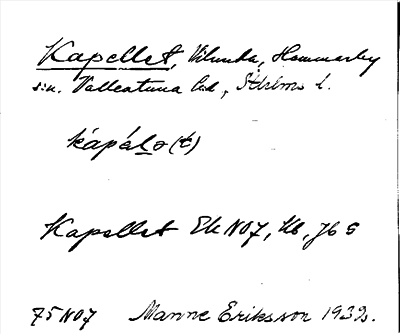 Kapellet, Vilunda, Hammarby
sn. Vallentuna hd, Sthlms l.
kápálo(t)
Kapellet Ek NO7, Hb, Jb 5
75 NO7 Manne Eriksson 1932.